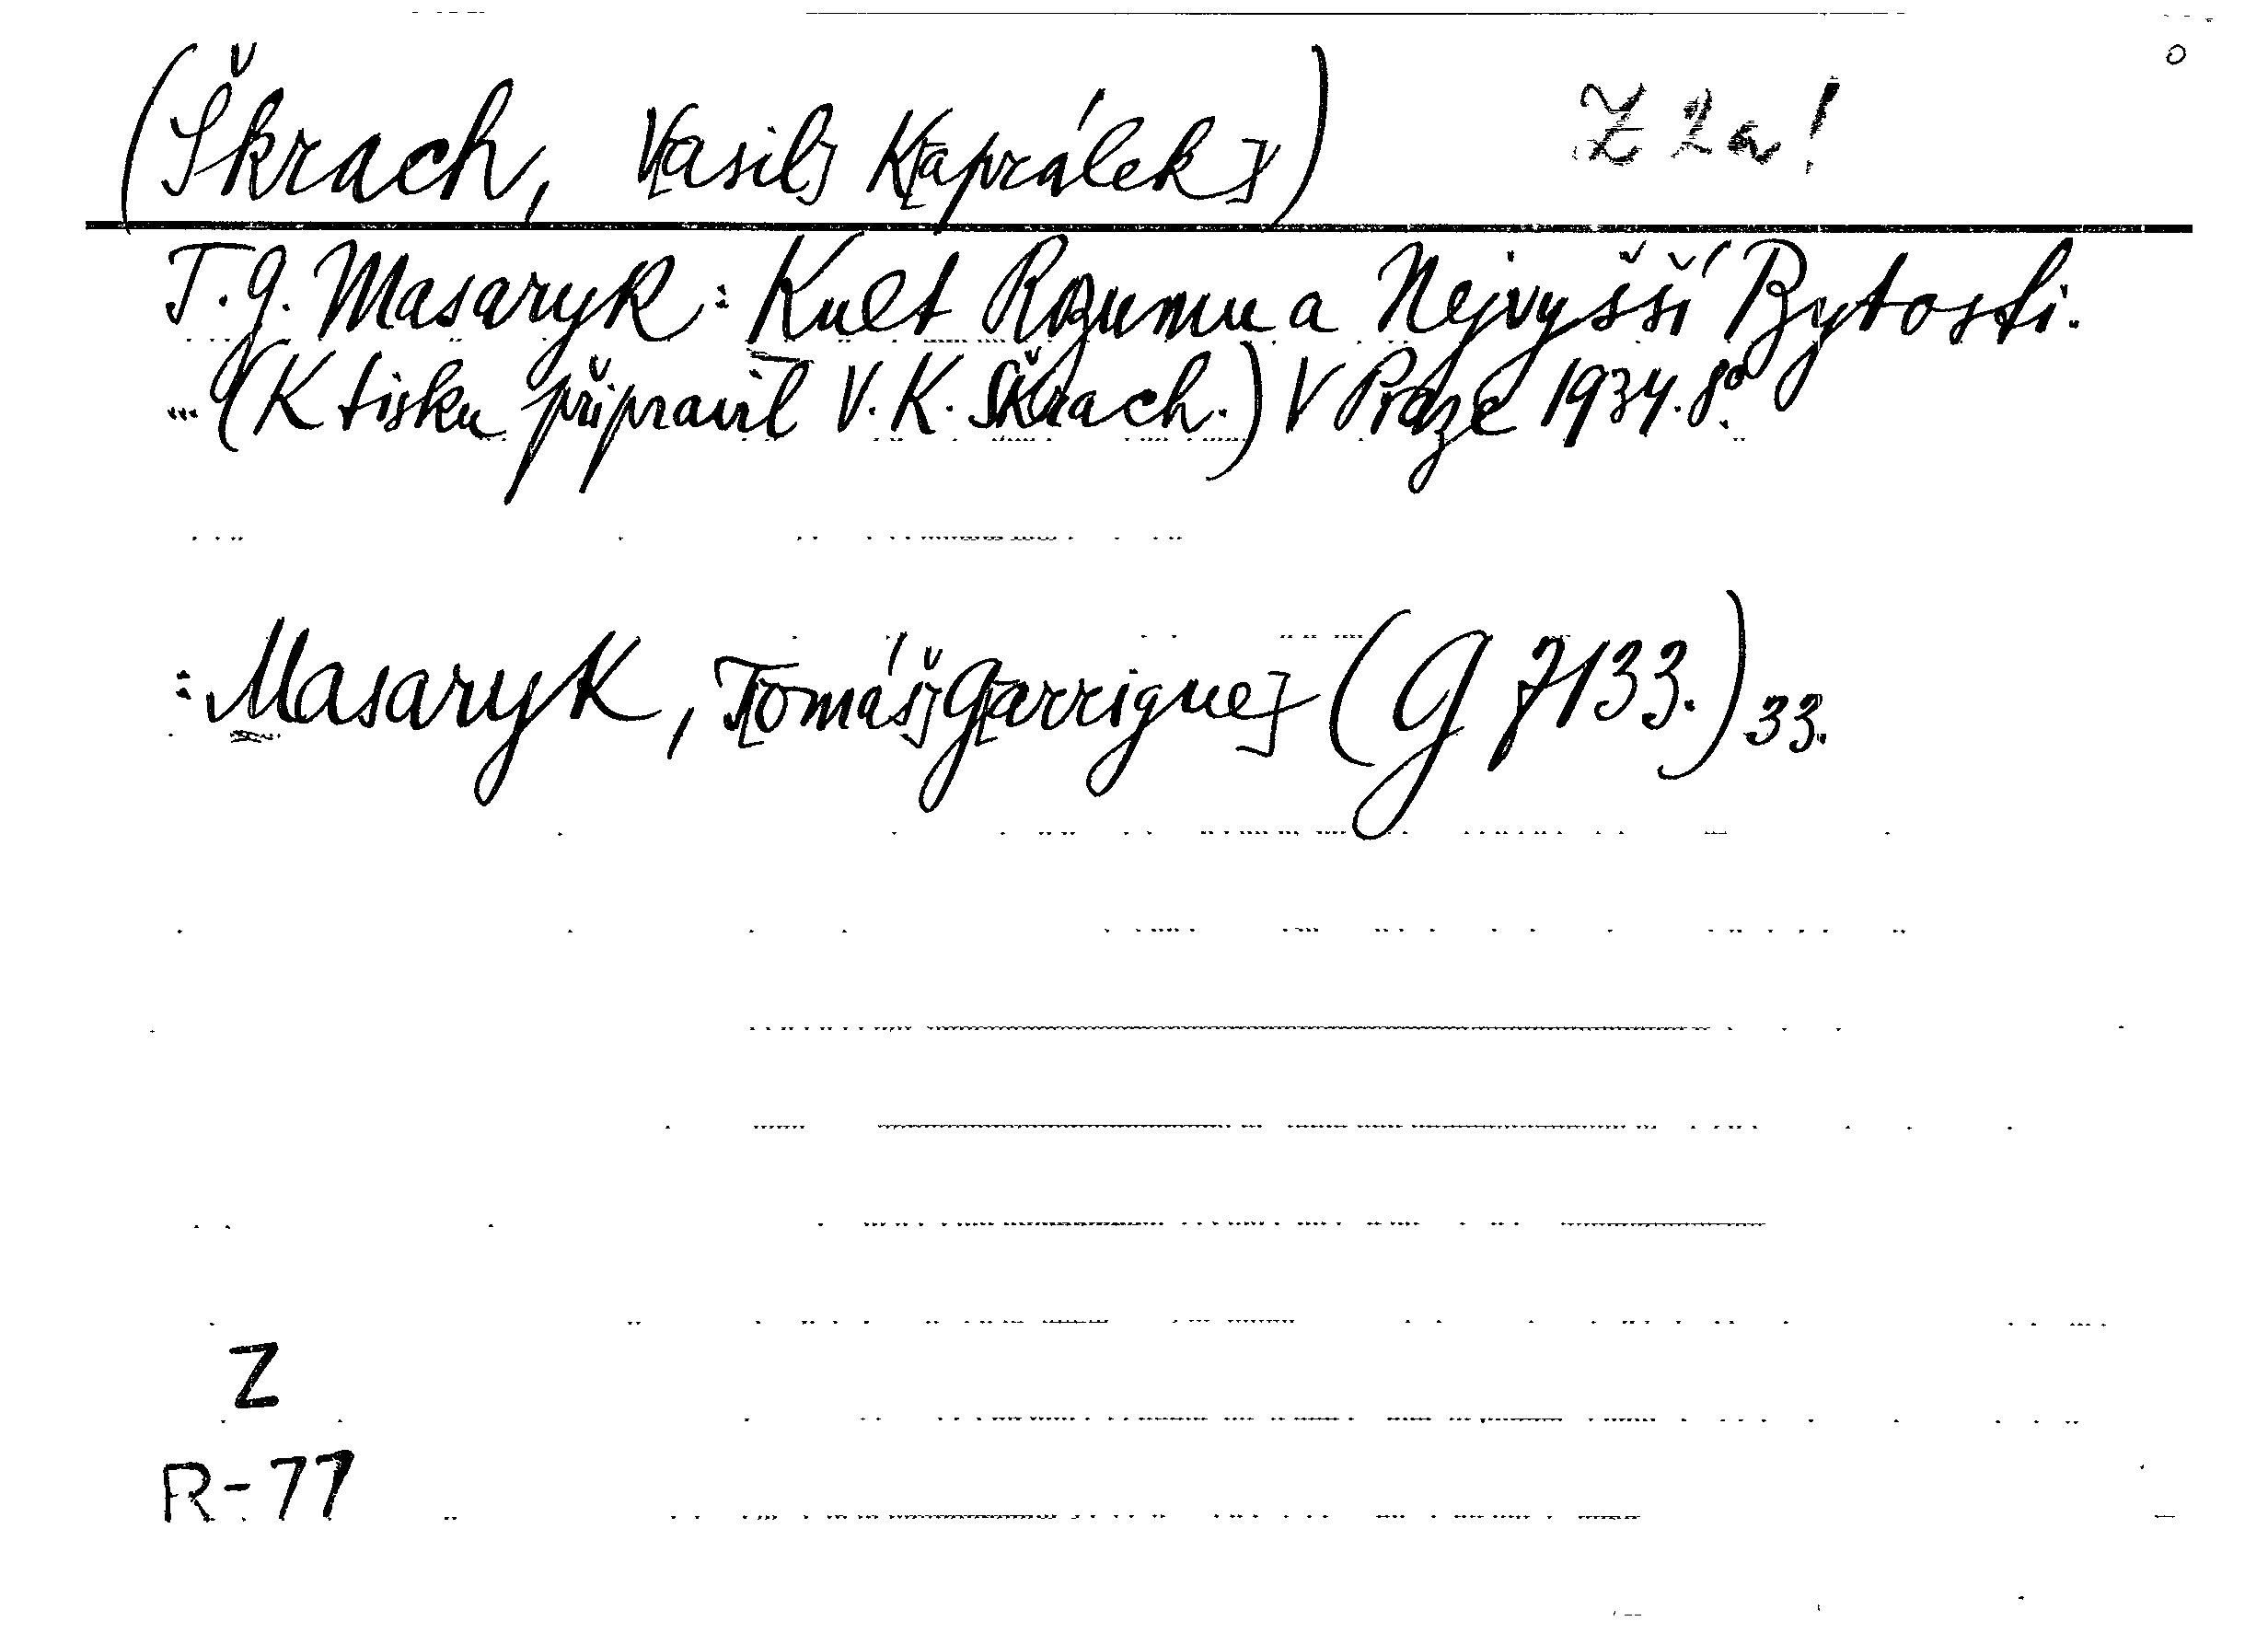 (Škrach, V[asil] K[aprálek]) Z 2a!
T. G. Masaryk: Kult Rozumu a Nejvyšší Bytosti.
... (K tisku připravil V. K. Škrach.) V Praze 1934. 8°.
: Masaryk, T[omáš] G[arrigue] (G 7133.) 33.
Z
R-77